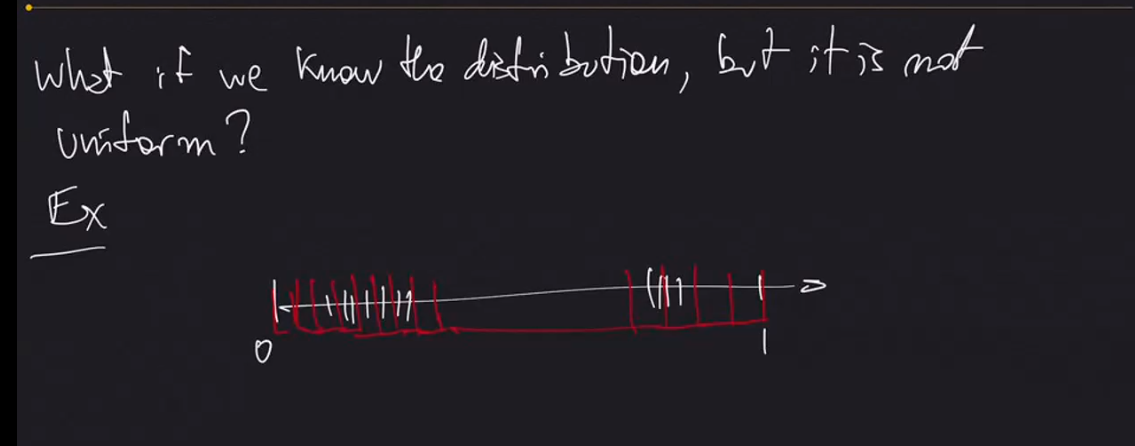 What if we know the distribution, but it is not
uniform?
Ex
0 1